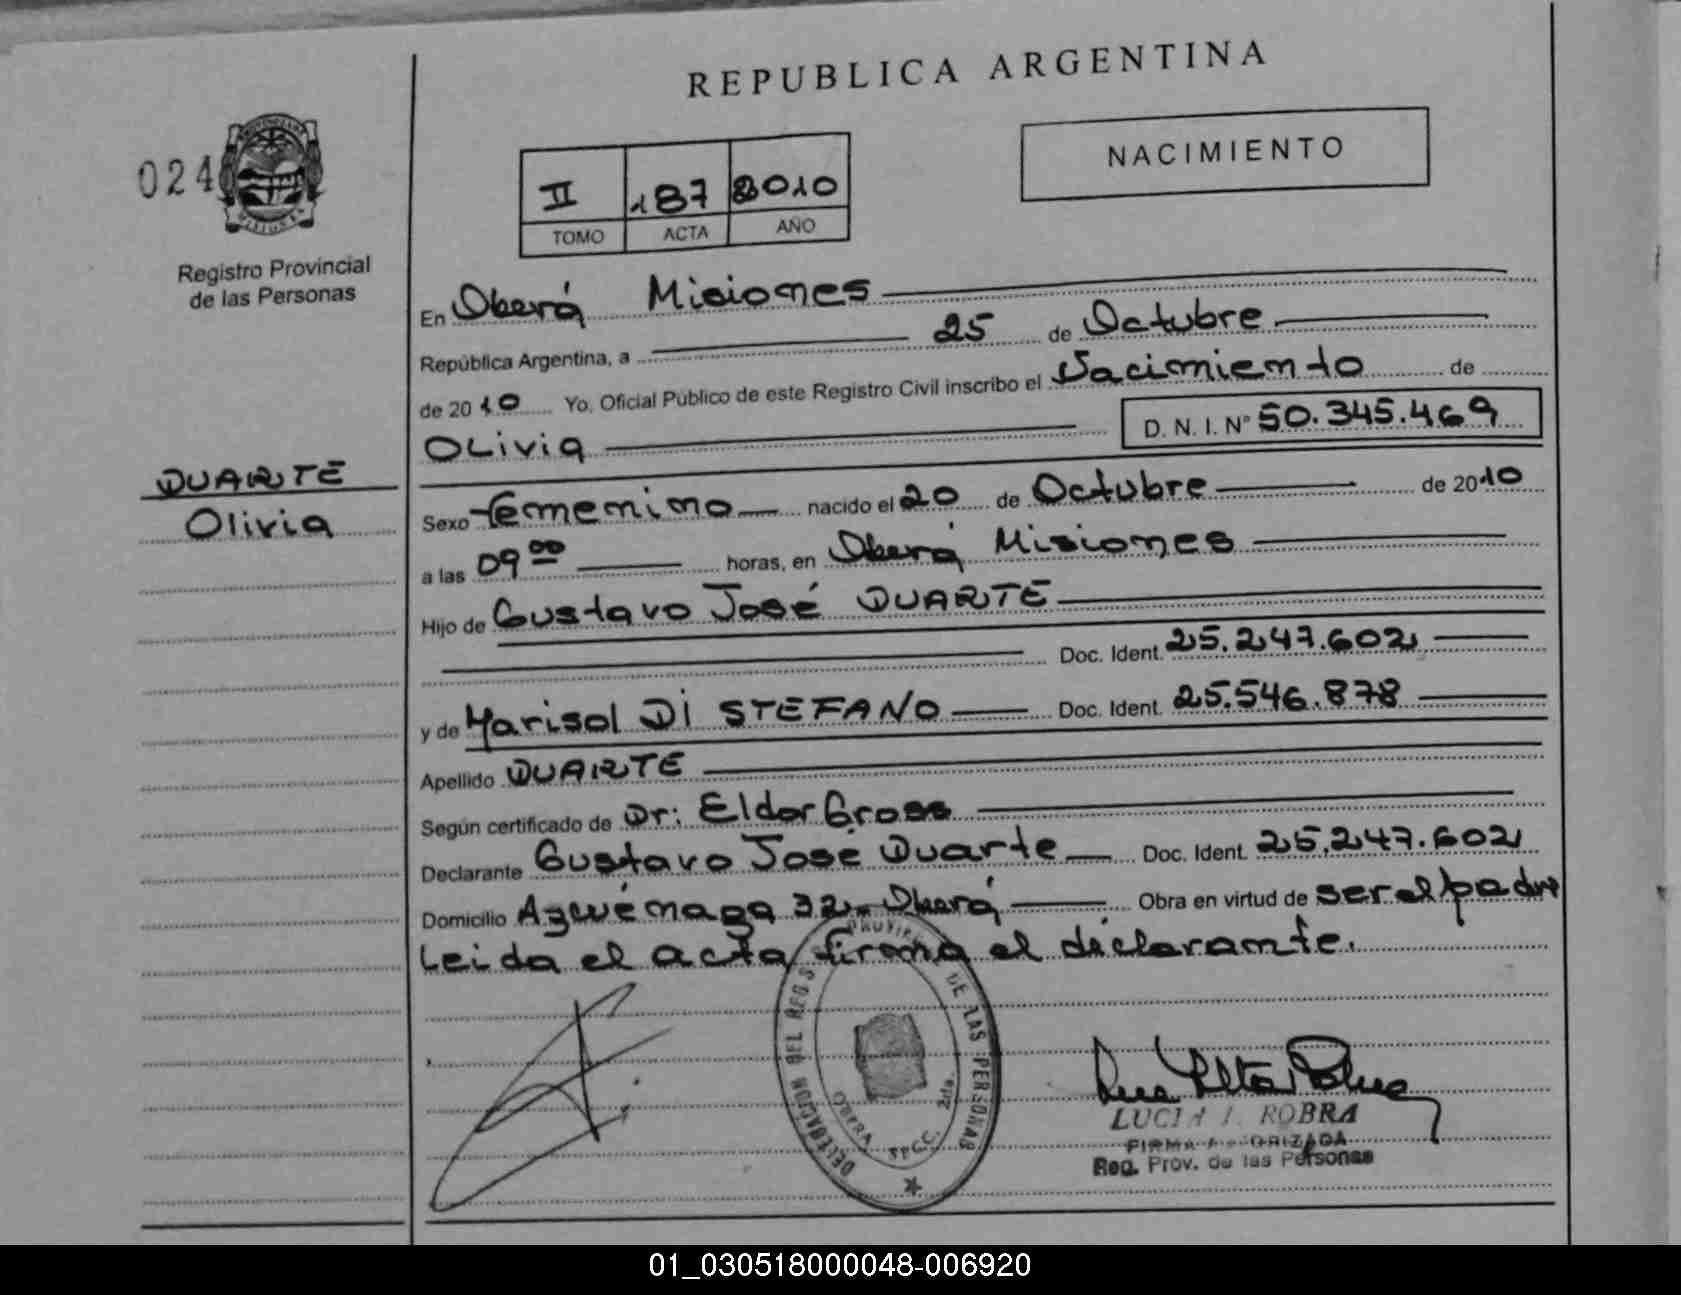 REPUBLICA ARGENTINA
NACIMIENTO
024
II 187 2010
TOMO ACTA AÑO
Registro Provincial
de las Personas
En Oberá Misiones
República Argentina, a 25 de Octubre
de 2010 Yo, Oficial Público de este Registro Civil inscribo el Nacimiento de
OLivia D. N. I. N° 50.345.469
DUARTE
Olivia
Sexo femenino nacido el 20 de Octubre de 2010
a las 09 00 horas, en Oberá Misiones
Hijo de Gustavo José DUARTE
Doc. Ident. 25.247.602
y de Marisol DI STEFANO Doc. Ident. 25.546.878
Apellido DUARTE
Según certificado de Dr: Eldor Gross
Declarante Gustavo José Duarte Doc. Ident. 25.247.602
Domicilio Azcuénaga 32 - Oberá Obra en virtud de ser el padre
Leida el acta firma el declarante.
DELEGACION DEL REG. DE LAS PERSONAS
OBERA SECC. 2da.
LUCIA ROBRA
FIRMA
Reg. Prov. de las Personas
01_030518000048-006920